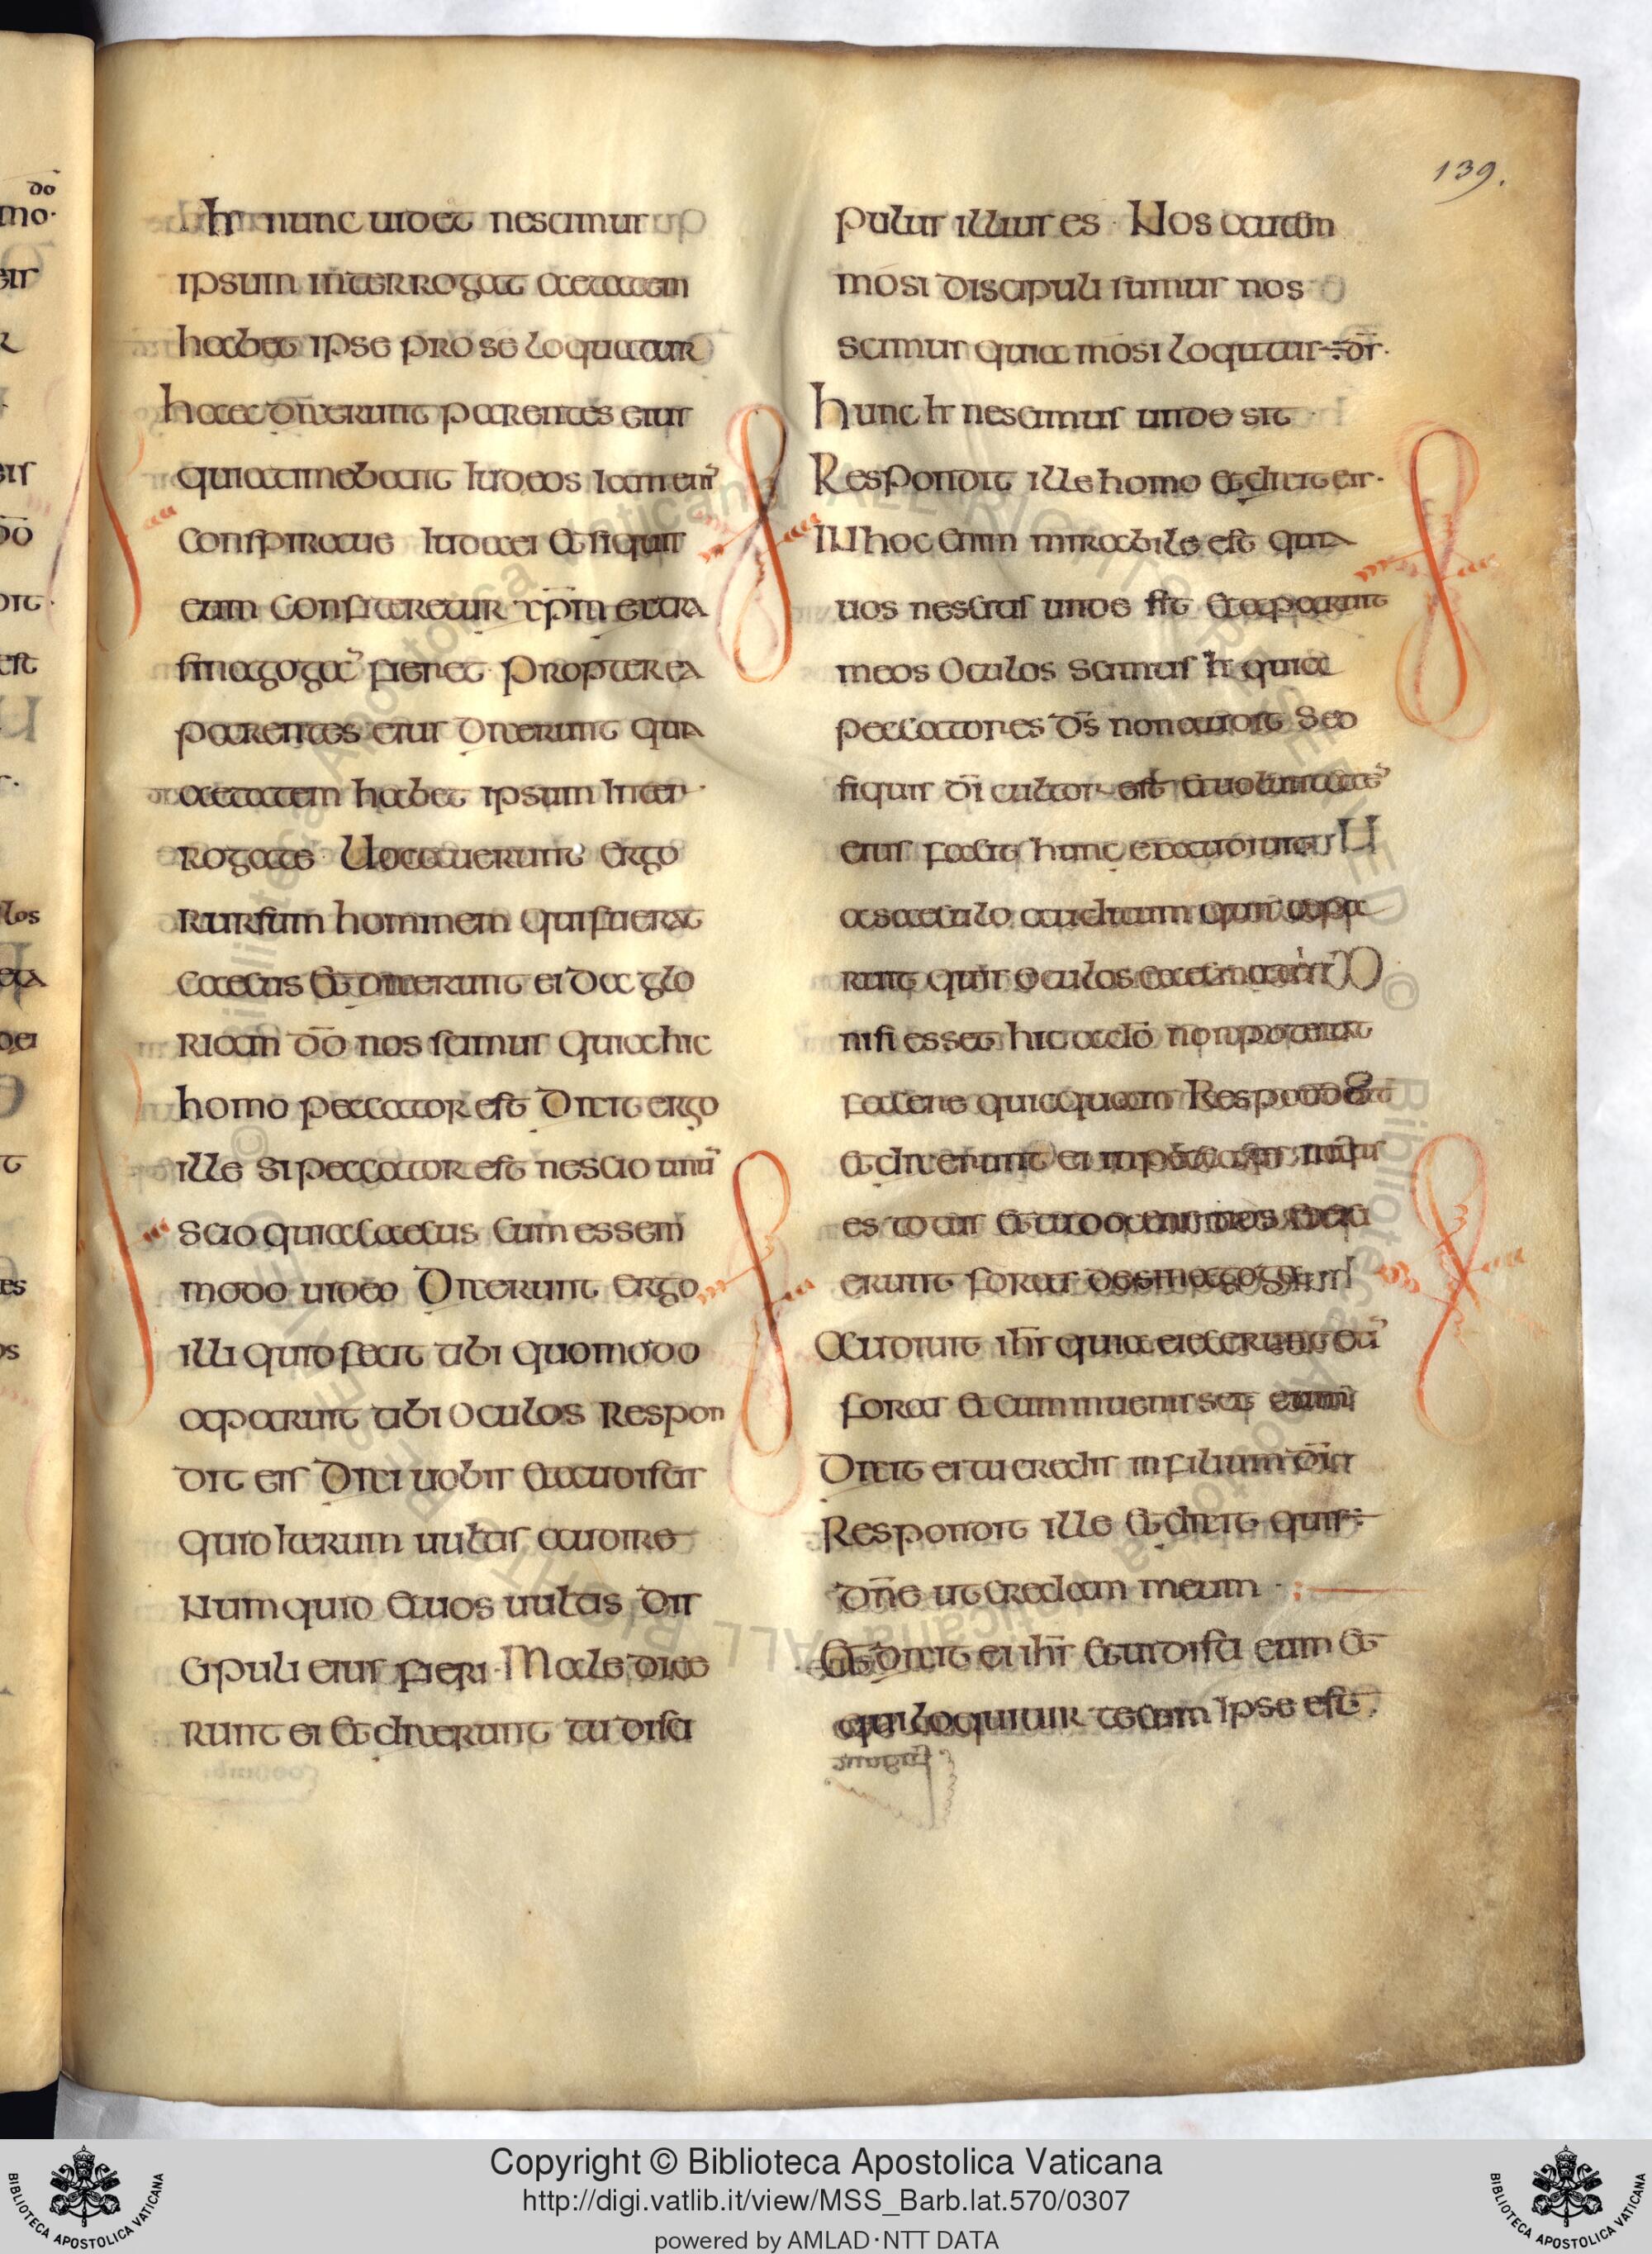 139.
hr nunc uidet nescimus
ipsum interrogat aetatem
habet ipse pro se loquatur
haec dixerunt parentes eius
quia timebant iudeos iam eni̅
conspirauer iudaei et si quis
eum confiteretur xp̅m extra
sinagoga̅ fieret propterea
parentes eius dixerunt quia
aetatem habet ipsum inter
rogate Uocauerunt ergo
rursum hominem qui fuerat
caecus et dixerunt ei da glo
riam d̅o nos scimus quia hic
homo peccator est Dixit ergo
ille si peccator est nescio unu̅
scio quia caecus cum essem
modo uideo Dixerunt ergo
illi quid fecit tibi quomodo
aparuit tibi oculos respon
dit eis Dixi uobis et audistis
quid iterum uultis audire
Numquid et uos uultis dis
cipuli eius fieri · Maledixe
runt ei et dixerunt tu disci
pulus illius es · Nos autem
mosi discipuli sumus nos
scimus quia mosi loqutus d̅s ·
hunc hr nescimus unde sit
Respondit ille homo et dixit eis ·
IN hoc enim mirabile est quia
uos nescitis unde sit et aparuit
meos oculos scimus hr quia
peccatores d̅s non audit Sed
si quis d̅i cultor est et uoluntate̅
eius facit hunc exaudi
a saeculo auditum quia
quis oculos caeci nati
nisi esset hic a d̅o non poterat
facere quicquam Respond
et dixerunt ei in peccatis natus
es totus et tu doces nos et eieci
erunt foras
Audiuit ih̅s quia eiecerunt eu̅
foras et cum inuenisset eum
Dixit ei tu credis in filium d̅i
Respondit ille et dixit quis ÷
d̅n̅e ut credam in eum ·
Et dixit ei ih̅s et uidisti eum et
qui loquitur tecum ipse est
Copyright © Biblioteca Apostolica Vaticana
http://digi.vatlib.it/view/MSS_Barb.lat.570/0307
powered by AMLAD·NTT DATA